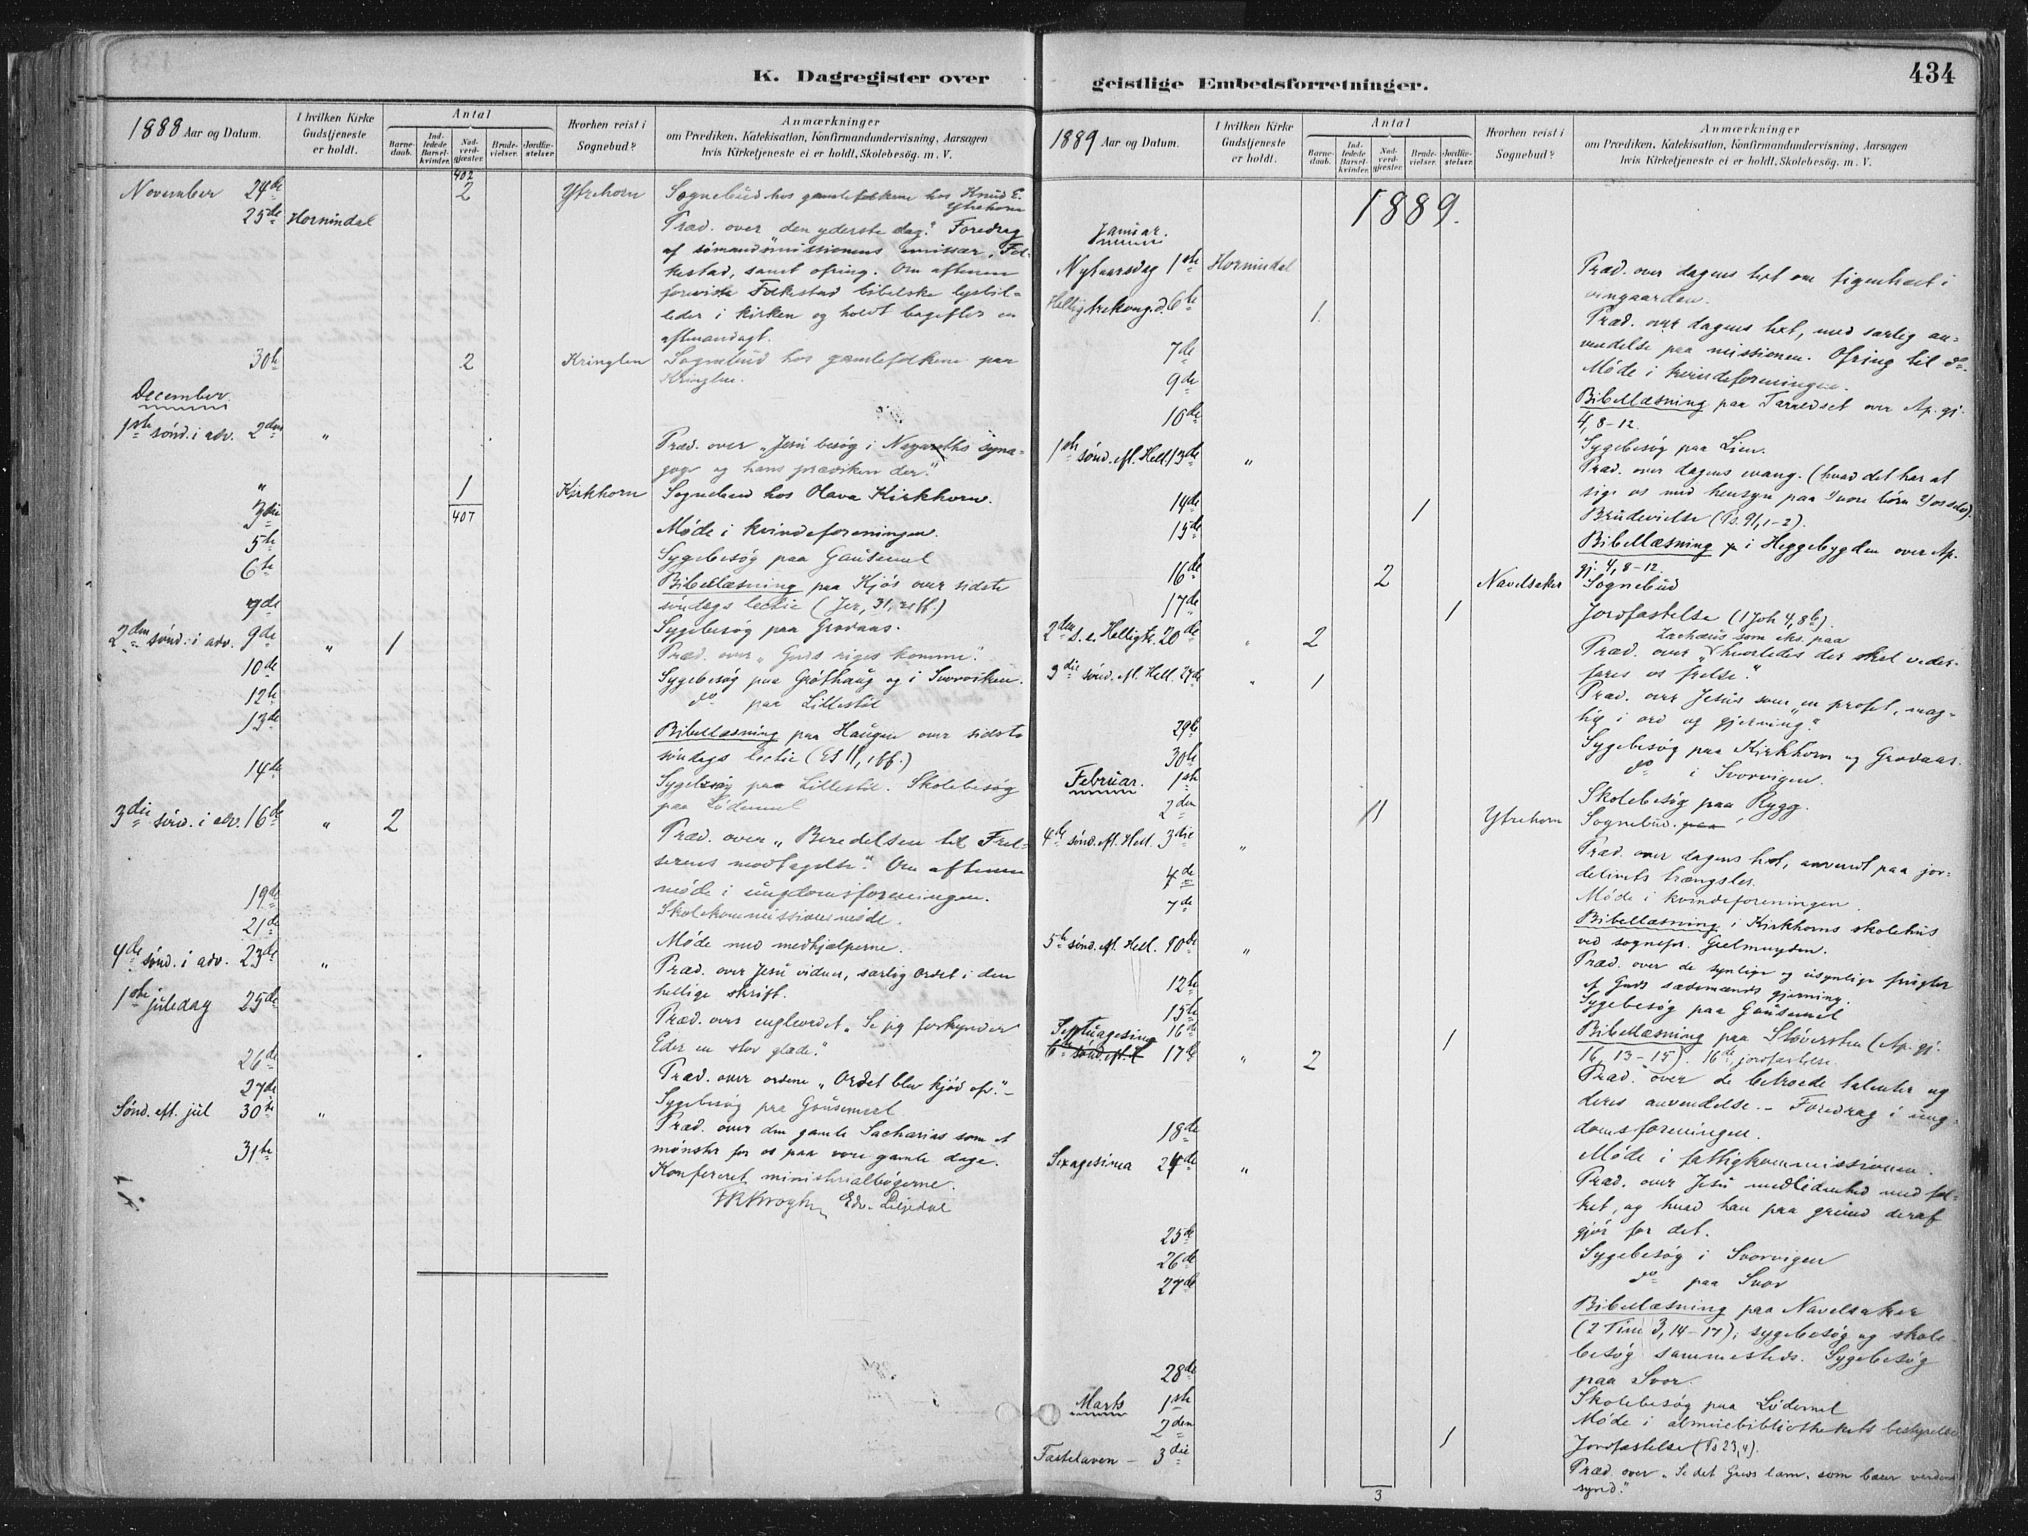 K. Dagregister over
1888 Aar og Datum.
I hvilken Kirke Gudstjeneste er holdt.
Antal
Barne- daab.
Ind- ledede Barsel- kvinder.
Nad- verd- gjæster.
Brude- vielser.
Jordfæ- stelser.
Hvorhen reist i Sognebud?
Anmærkninger
om Prædiken, Katekisation, Konfirmandundervisning, Aarsagen
hvis Kirketjeneste ei er holdt, Skolebesøg. m. V.
402
November 24de 2 Ytrehorn Sognebud hos gamlefolkene hos Knud E.
Ytrehorn
25de Hornindal Præd. over "den yderste dag." Foredrag
af sømandsmissionens emissær, Fol-
kestad, samt ofring. Om aftenen
foreviste Folkestad bibelske lysbil-
leder i kirken og holdt bagefter en
aftenandagt.
30te 2 Kringlen Sognebud hos gamlefolkene paa
Kringlen.
December
1ste sønd. i adv. 2den " Præd. over "Jesu besøg i Nazareths syna-
goge og hans prædiken der."
" 1 Kirkhorn Sognebud hos Olava Kirkhorn.
3die 407 Møde i kvindeforeningen.
5te Sygebesøg paa Gausemel
6te Bibellæsning paa Kjøs over sidste
søndags lectie (Jer, 31, 31 ff.)
7de Sygebesøg paa Grodaas.
2den sønd. i adv. 9de " 1 Præd. over "Guds riges komme".
10de Sygebesøg paa Grøthaug og i Svorviken.
12te do paa Lillestøl
13de Bibellæsning paa Haugen over sidste
søndags lectie (Es 11, 1 ff.)
14de Sygebesøg paa Lillestøl. Skolebesøg
paa Lødemel
3die sønd. i adv. 16de " 2 Præd. over "Beredelsen til Frel-
serens modtagelse." Om aftenen
møde i ungdomsforeningen.
19de Skolekommissionsmøde.
21de Møde med medhjælperne.
4de sønd. i adv. 23de " Præd. over Jesu vidner, særlig Ordet i den
hellige skrift.
1ste juledag 25de Præd. over engleordet "Se jeg forkynder
Eder en stor glæde."
26de Præd. over ordene "Ordet blev kjød osv." -
27de Sygebesøg paa Gausemel
Sønd. eft. jul 30te " Præd. over den gamle Sacharias som et
mønster for os paa vore gamle dage.
31te Konfereret ministerialbøgerne.
HRKrogh Edv. Liljedal
geistlige Embedsforretninger.
434
1889 Aar og Datum.
I hvilken Kirke Gudstjeneste er holdt.
Antal
Barne- daab.
Ind- ledede Barsel- kvinder.
Nad- verd- gjæster.
Brude- vielser.
Jordfæ- stelser.
Hvorhen reist i Sognebud?
Anmærkninger
om Prædiken, Katekisation, Konfirmandundervisning, Aarsagen
hvis Kirketjeneste ei er holdt, Skolebesøg. m. V.
1889.
Januar.
Nytaarsdag 1ste Hornindal Præd. over dagens text om figentræet i
vingaarden.
Hellig trekong. d. 6te 1. Præd. over dagens text, med særlig an-
vendelse paa missionen. Ofring til do.
7de Møde i kvindeforeningen.
9de Bibellæsning paa Tarredset over Ap. gj.
4, 8-12.
10de Sygebesøg paa Lien.
1ste sønd. ef. Hell. 13de " Præd. over dagens evang. (hvad det har at
sige os med hensyn paa vore børn
14de 1 Brudevielse (Ps. 91, 1-2).
15de Bibellæsning i Heggebygden over Ap.
gj. 4, 8-12.
16de 2 Navelsaker Sognebud
17de 1 Jordfæstelse (1 Joh 4, 8b).
2den s. e. Helligtr. 20de " 2 Præd. over "Zachæus som eks. paa
hvorledes der skal veder-
fares os frelse."
3die sønd. ef. Hell. 27de " 1 Præd. over Jesus som "en profet, mæg-
tig i ord og gjerning."
29de Sygebesøg paa Kirkhorn og Grodaas.
30te do i Svorvigen.
Februar. 1ste Skolebesøg paa Rygg.
2den 11 Ytrehorn Sognebud.
4de sønd. ef. Hell. 3die " Præd. over dagens text, anvendt paa jor-
delivets trængsler.
4de Møde i kvindeforeningen.
7de Bibellæsning i Kirkhorns skolehus
ved sognepr. Gjelmuyden.
5te sønd. ef. Hell. 10de " Præd. over de synlige og usynlige frugter
af Guds sædemænds gjerning.
12te Sygebesøg paa Gausemel
15te Bibellæsning paa Støverstein (Ap. gj.
Septuagesima 16de 1 16, 13-15). 16de jordfæstelse.
17de " 2 Præd. over de betroede talenter og
deres anvendelse. - Foredrag i ung-
domsforeningen.
18de Møde i fattigkommissionen.
Sexagesima 24de " Præd. over Jesu medlidenhed med fol-
ket, og hvad han paa grund deraf
gjør for det.
25de Sygebesøg i Svorvigen
26de do paa Svor
27de Bibellæsning paa Navelsaker
(2 Tim 3, 14-17); sygebesøg og skole-
besøg sammesteds. Sygebesøg
paa Svor.
28de Skolebesøg paa Lødemel
Marts 1ste Møde i almuebibliothekets bestyrelse
2den 1 Jordfæstelse (Ps 23, 4).
Fastelaven - 3die Præd. over "Se det Guds lam, som bærer verdens
synd."
3